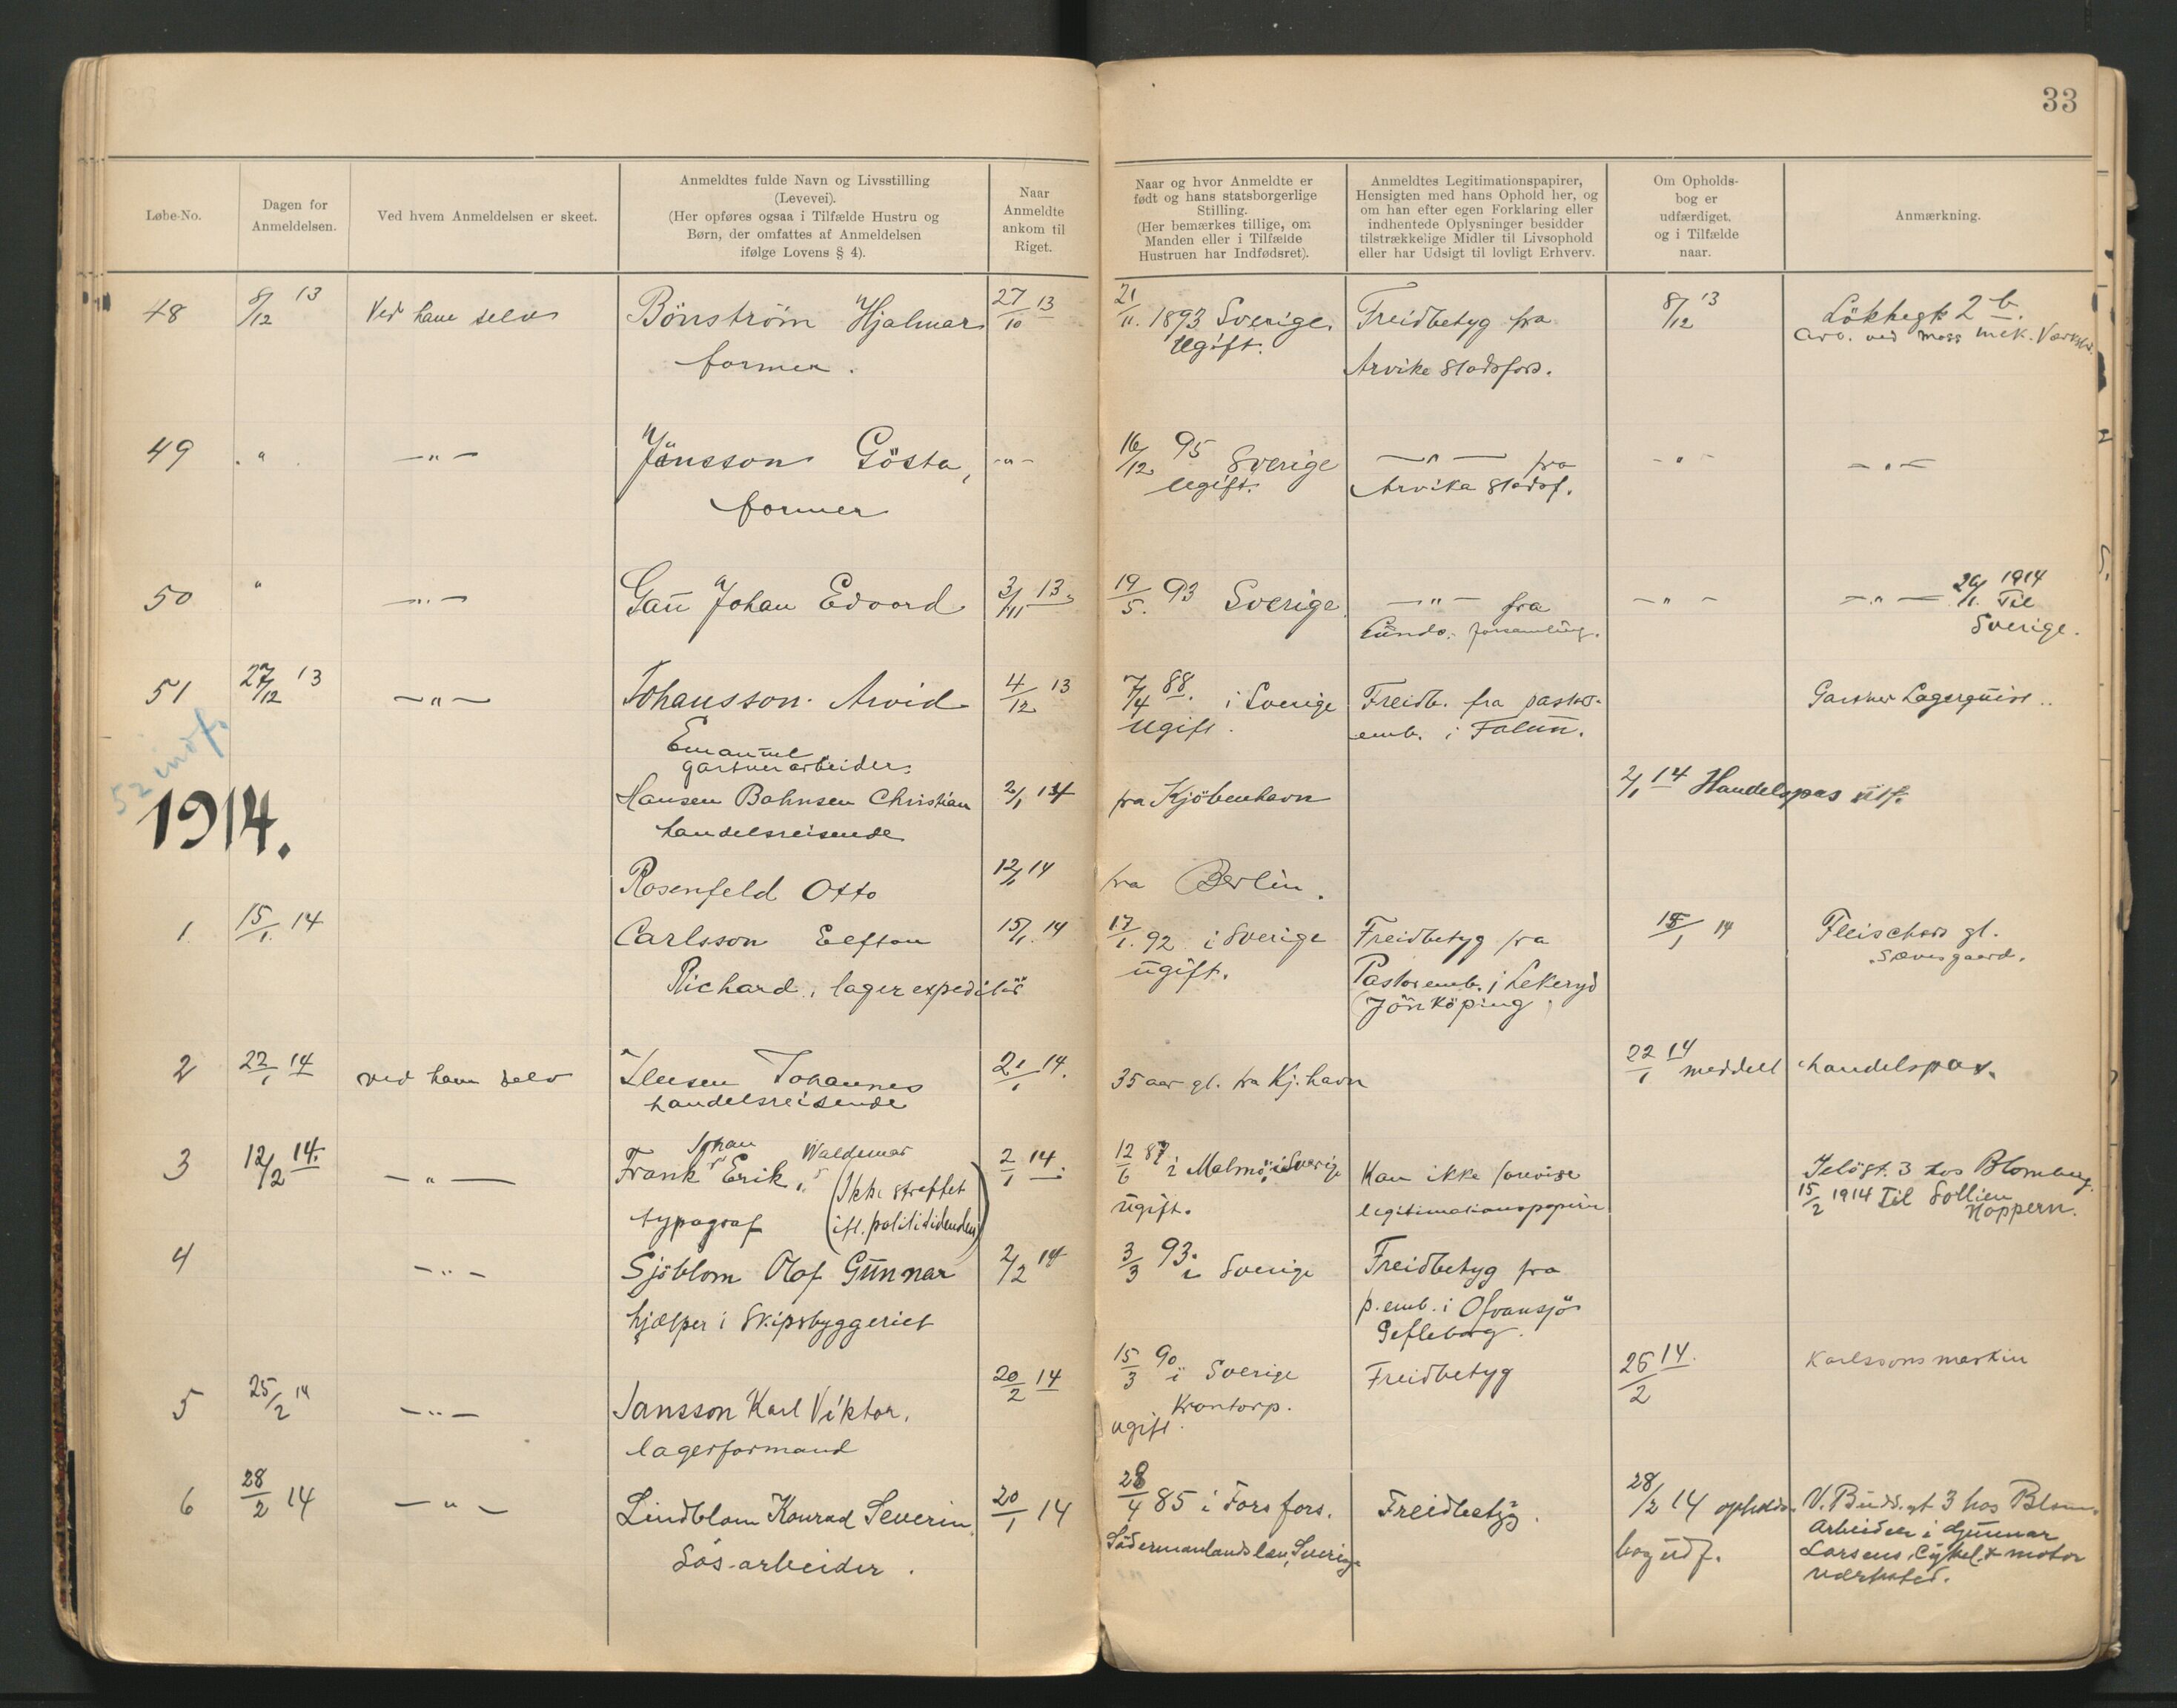 33
Løbe-No.
Dagen for
Anmeldelsen.
Ved hvem Anmeldelsen er skeet.
Anmeldtes fulde Navn og Livsstilling
(Levevei).
(Her opføres ogsaa i Tilfælde Hustru og
Børn, der omfattes af Anmeldelsen
ifølge Lovens § 4).
Naar
Anmeldte
ankom til
Riget.
Naar og hvor Anmeldte er
født og hans statsborgerlige
Stilling.
(Her bemærkes tillige, om
Manden eller i Tilfælde
Hustruen har Indfødsret).
Anmeldtes Legitimationspapirer,
Hensigten med hans Ophold her, og
om han efter egen Forklaring eller
indhentede Oplysninger besidder
tilstrækkelige Midler til Livsophold
eller har Udsigt til lovligt Erhverv.
Om Opholds-
bog er
udfærdiget,
og i Tilfælde
naar.
Anmærkning.
48 8/12 13 Ved ham selv Bönström Hjalmar 27/10 13 21/11. 1893 Sverige. Freidbetyg fra 8/12 13 2 b.
former. Ugift. Arvika stadsfors. arb. ved Moss mek. Værksted.
49 " —"— Jönsson Gösta, -"- 16/12 95 Sverige —"— fra -"- —"—
former Ugift. Arvika stadsf.
50 " —"— Johan Edvard 3/11 13. 19/5. 93 Sverige. —"— fra —"— —"— 26/1. 1914 Til
forsamling. Sverige.
51 27/12 13 —"— Johansson Arvid 4/12 13 7/4 88. i Sverige Freidb. fra pastor- Gartner Lagerquist.
Emanuel Ugift. emb. i Falun.
gartnerarbeider.
52 indf.
1914.
Hansen Bahnsen Christian 2/1 14 fra Kjöbenhavn 2/1 14 Handelspas utf.
handelsreisende
Rosenfeld Otto 12/1 14 fra Berlin.
1 15/1. 14 Carlsson 15/1. 14 17/1. 92 i Sverige Freidbetyg fra 15/1 14 Fleischers gl.
Richard, lagerexpeditör ugift. Pastoremb. i Lekeryd
Jönköping
2 22/1 14 ved ham selv Johannes 21/1 14. 35 aar gl. fra Kj.havn 22/1 14 meddelt handelspas.
handelsreisende
3 12/2 14. —"— Frank Erik Johan Waldemar 2/1 14. 12/6 87 i Malmö i Sverige Kan ikke forevise Jelögt. 3 hos Blomberg.
typograf (Ikke straffet ifl. polititidenden) ugift. legitimationspapirer 15/2 1914 Til Sollien Noppern.
4 —"— Sjöblom Olof Gunnar 2/2 14 3/3 93. i Sverige Freidbetyg fra
hjælper i Skipsbyggeriet p. emb. i Ofvansjö
Gefleborg.
5 25/2 14 —"— Jansson Karl Viktor. 20/2 14 15/3 90 i Sverige Freidbetyg 26/2 14. Karlssons maskin
lagerformand Krontorp.
ugift.
6 28/2 14 —"— Lindblom Konrad Severin 20/1 14 28/4 85 i Fors fors. Freidbetyg. 28/2 14 opholds- V. Budd.gt 3 hos Blom.
Lös-arbeider. Södermanlands læn, Sverige bog udf. Arbeider i Gunnar
Larsens Cykel & motor
verksted.